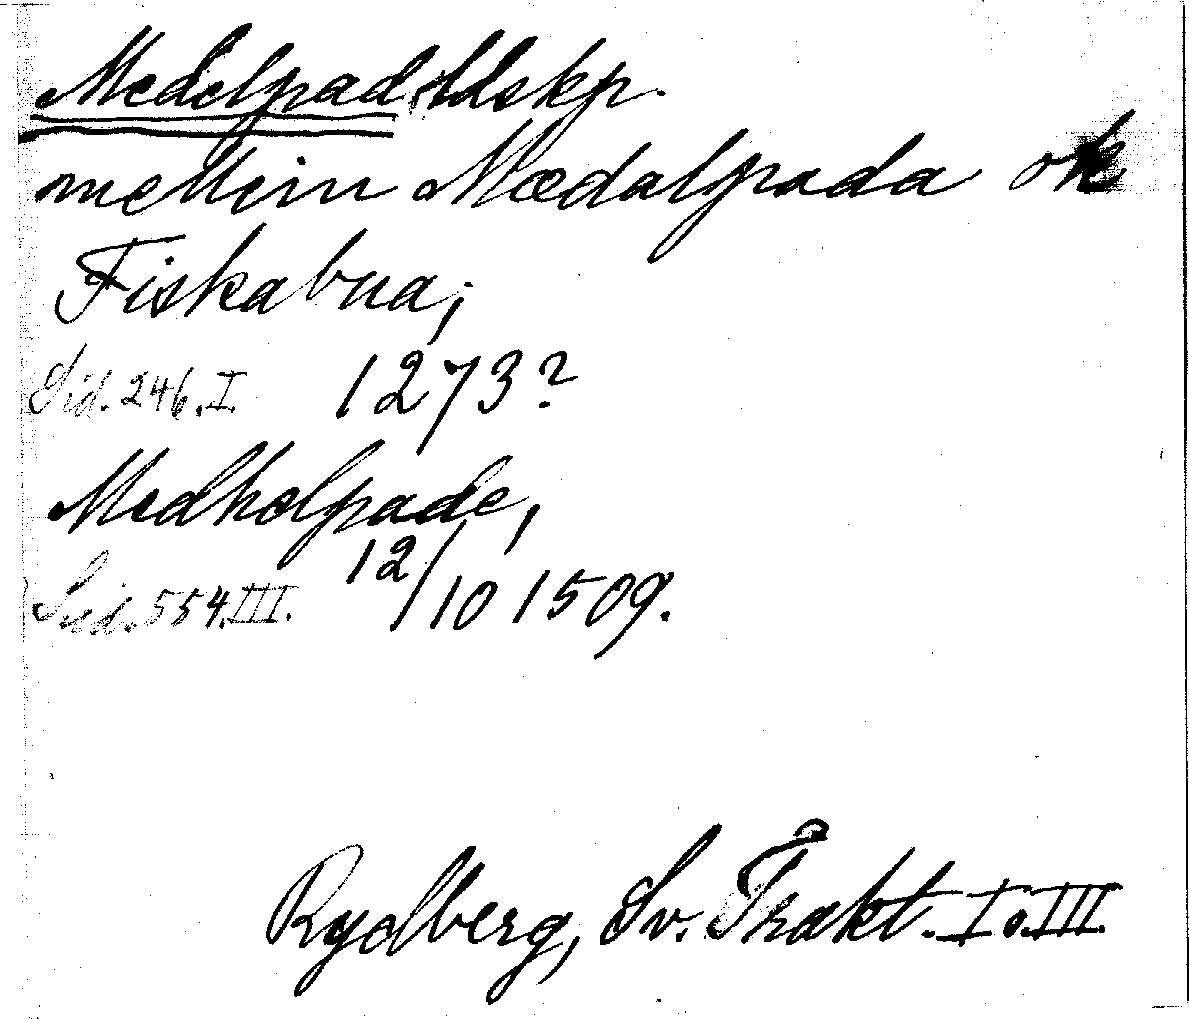 Medelpad ldskp.
mellin Mædalpada ok
Fiskabua;
Sid. 246. I. 1273?
Medhelpade,
Sid. 554. III. 12/10 1509.
Rydberg, Sv. Trakt. I o. III.